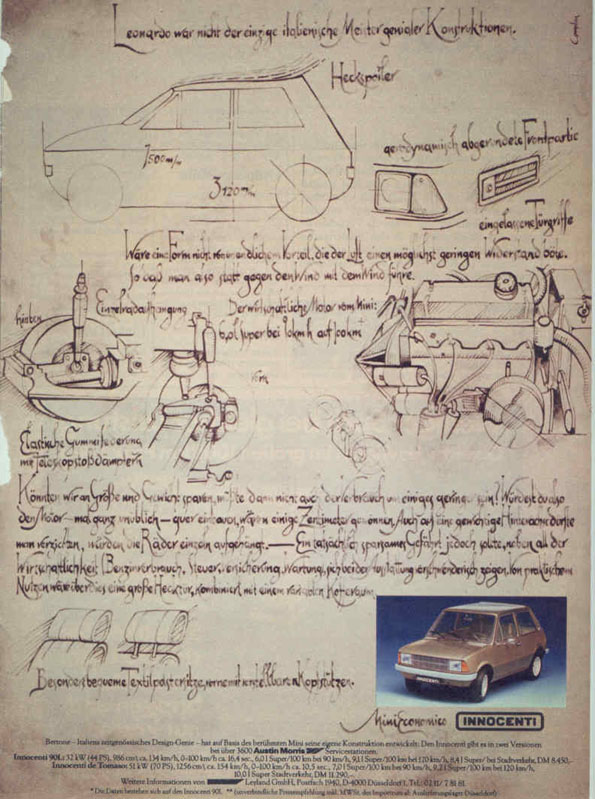 Leonardo war nicht der einzige italienische Meister genialer Konstruktionen.
Heckspoiler
aerodynamisch abgerundete Frontpartie
1500m/m
3120m/m
eingelassene Türgriffe
Wäre eine Form nicht von unendlichem Vorteil, die der Luft einen möglichst geringen Widerstand böte.
So daß man also statt gegen den Wind mit dem Wind führe.
hinten
Einzelradaufhängung
Der wirtschaftliche Motor vom Mini:
super bei km/h auf 100 km
vorn
Elastische Gummifederung
mit Teleskopstoßdämpfern
Könnten wir an Größe und Gewicht sparen, müßte dann nicht auch der Verbrauch um einiges geringer sein? Würdest du also
den Motor – ganz unüblich – quer einbauen, wären einige Zentimeter gewonnen. Auch auf eine gewichtige Hinterachse dürfte
man verzichten, würden die Räder einzeln aufgehängt. – Ein tatsächlich sparsames Gefährt jedoch sollte, neben all der
Wirtschaftlichkeit (Benzinverbrauch, Steuer, Versicherung, Wartung), sich bei der Ausstattung verschwenderisch zeigen. Von praktischem
Nutzen wäre überdies eine große Hecktür, kombiniert mit einem variablen Kofferraum.
Besonders bequeme Textilpolstersitze, vorne mit verstellbaren Kopfstützen.
INNOCENTI
Mini Economico INNOCENTI
Bertone – Italiens zeitgenössisches Design-Genie – hat auf Basis des berühmten Mini seine eigene Konstruktion entwickelt. Den Innocenti gibt es in zwei Versionen
bei über 3600 Austin Morris Servicestationen.
Innocenti 90L: 32 kW (44 PS), 986 ccm, ca. 134 km/h, 0-100 km/h ca. 16,4 sec., 6,0 l Super/100 km bei 90 km/h, 9,1 l Super/100 km bei 120 km/h, 8,4 l Super/ bei Stadtverkehr, DM 8.450,-
Innocenti de Tomaso: 51 kW (70 PS), 1256 ccm, ca. 154 km/h, 0-100 km/h ca. 10,5 sec., 7, l Super/100 km bei 90 km/h, 9,2 l Super/100 km bei 120 km/h,
10,0 l Super Stadtverkehr, DM 11.290,-
Weitere Informationen von Leyland GmbH, Postfach 1940, D-4000 Düsseldorf 1, Tel. 02 11/7 81 81
* Die Daten beziehen sich auf den Innocenti 90L ** (unverbindliche Preisempfehlung inkl. MWSt. des Importeurs ab Auslieferungslager Düsseldorf)